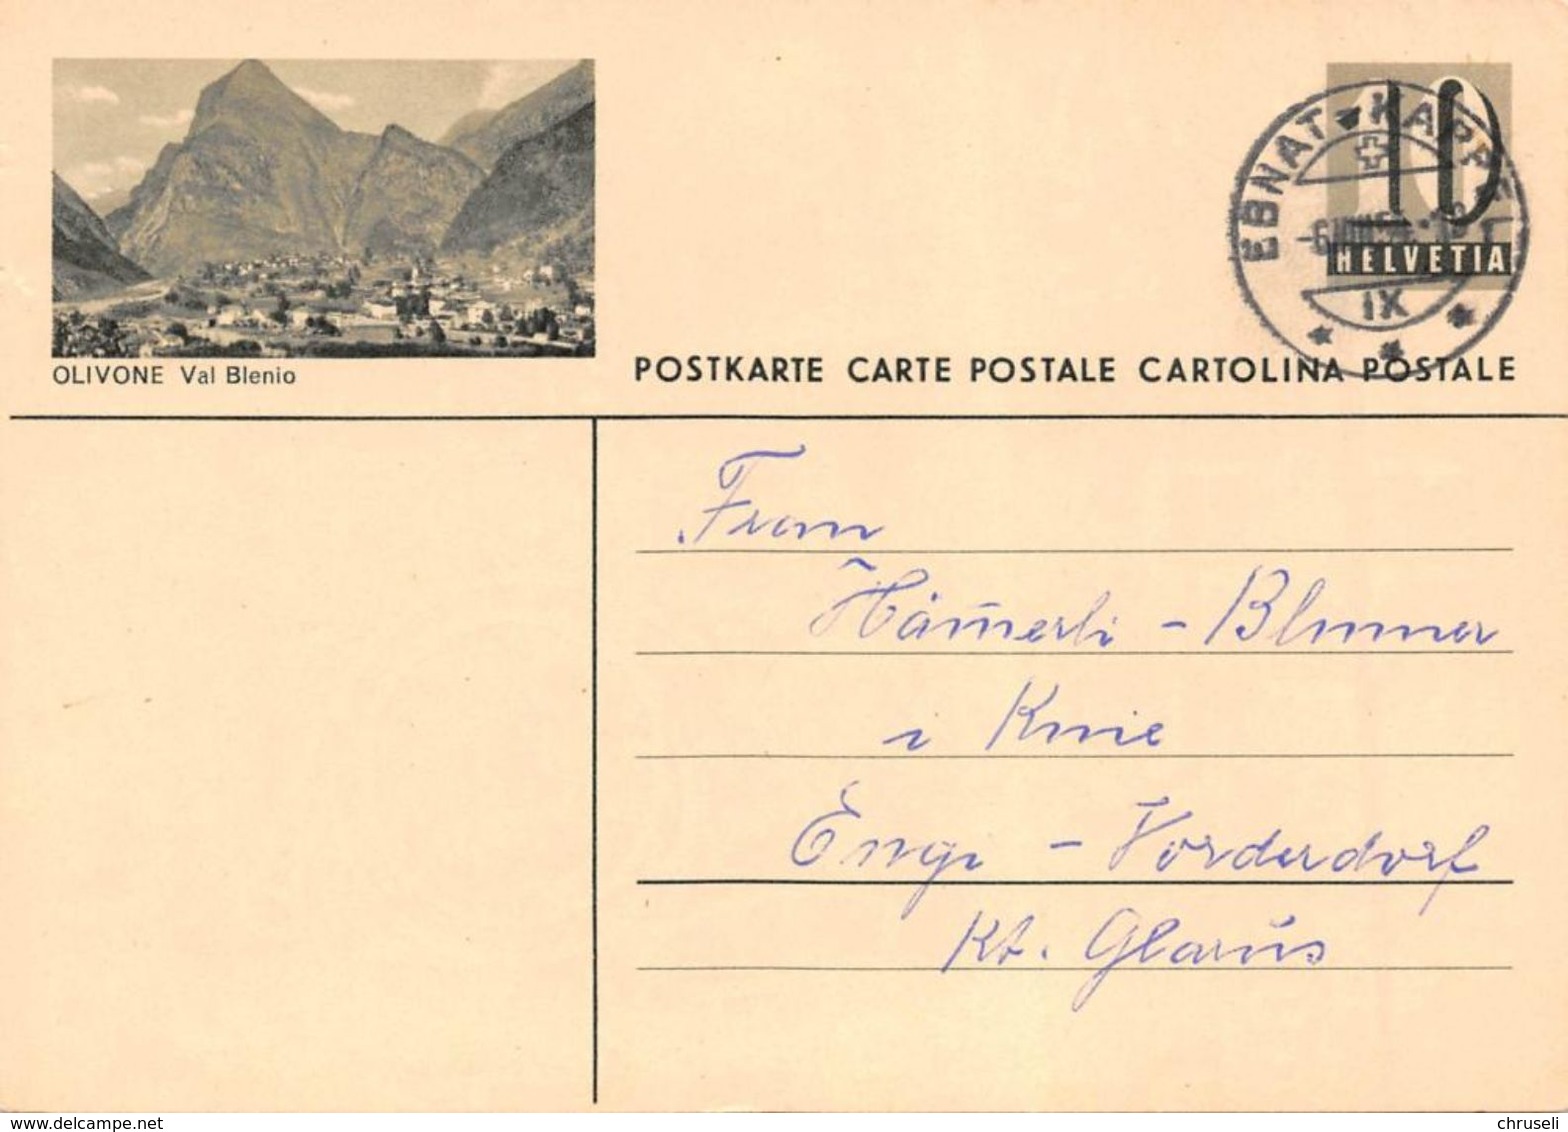 OLIVONE Val Blenio
POSTKARTE CARTE POSTALE CARTOLINA POSTALE
10
HELVETIA
EBNAT-KAPPEL
IX
Frau
Hämerli - Blumer
i Knie
Engi - Vorderdorf
Kt. Glarus
www.delcampe.net
chruseli